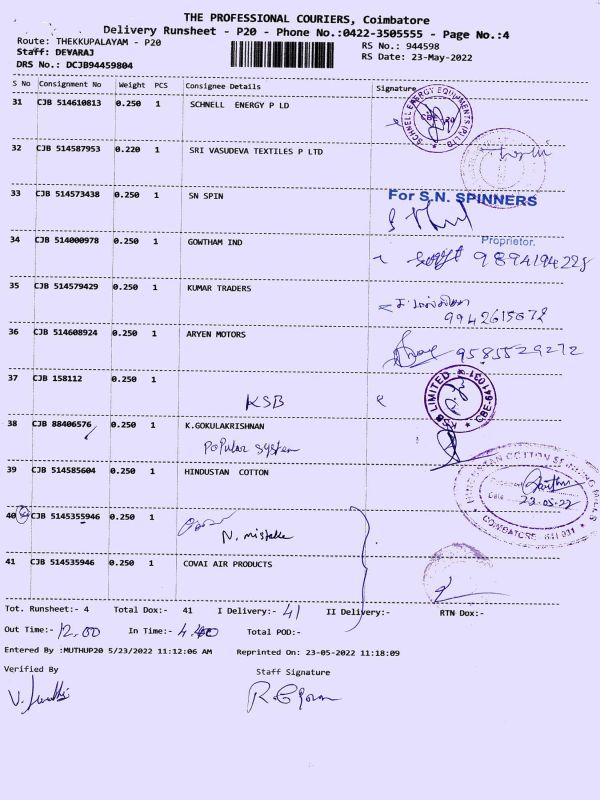 THE PROFESSIONAL COURIERS, Coimbatore
Delivery Runsheet - P20 - Phone No.:0422-3505555 - Page No.:4
Route: THEKKUPALAYAM - P20
RS No.: 944598
Staff: DEVARAJ
RS Date: 23-May-2022
DRS No.: DCJB94459804
S No Consignment No Weight PCS Consignee Details Signature
31 CJB 514610813 0.250 1 SCHNELL ENERGY P LD
SCHNELL ENERGY EQUIPMENTS (P) LTD
CBE-20
32 CJB 514587953 0.220 1 SRI VASUDEVA TEXTILES P LTD
33 CJB 514573438 0.250 1 SN SPIN
For S.N. SPINNERS
Proprietor.
34 CJB 514000978 0.250 1 GOWTHAM IND
9894194228
35 CJB 514579429 0.250 1 KUMAR TRADERS
9942615672
36 CJB 514608924 0.250 1 ARYEN MOTORS
9585529272
37 CJB 158112 0.250 1
KSB
KSB LIMITED * CBE-641031 *
38 CJB 88406576 0.250 1 K.GOKULAKRISHNAN
Popular system
39 CJB 514585604 0.250 1 HINDUSTAN COTTON
HINDUSTAN COTTON SPINNING MILLS
Date 23-05-22
* COIMBATORE 641 031 *
40 CJB 5145355946 0.250 1
N. mistake
41 CJB 514535946 0.250 1 COVAI AIR PRODUCTS
Tot. Runsheet:- 4 Total Dox:- 41 I Delivery:- 41 II Delivery:- RTN Dox:-
Out Time:- 12.00 In Time:- 4.40 Total POD:-
Entered By :MUTHUP20 5/23/2022 11:12:06 AM Reprinted On: 23-05-2022 11:18:09
Verified By Staff Signature